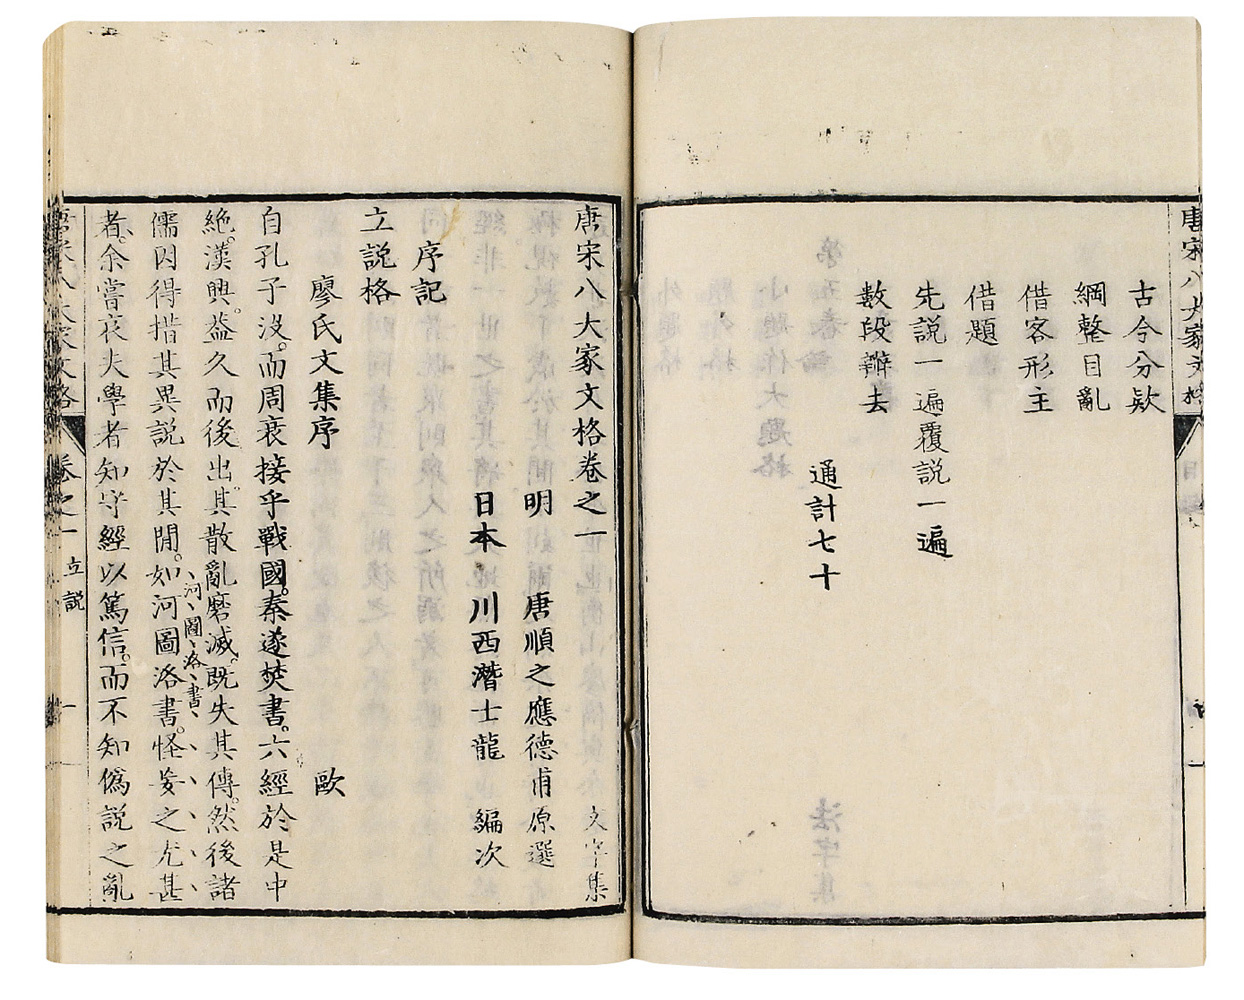 古今分款
綱整目亂
借客形主
借題
先説一遍覆説一遍
數段辯去
通計七十
唐宋八大家文格卷之一 文字集
明 唐順之應德甫原選
日本 川西潛士龍 編次
序記
立説格
廖氏文集序 歐
自孔子沒。而周衰接乎戰國。秦遂焚書。六經於是中
絶。漢興。蓋久而後出。其散亂磨滅。既失其傳。然後諸
儒因得措其異説於其間。如河圖洛書。怪妄之尤甚
者。余嘗哀夫學者知守經以篤信。而不知僞説之亂
唐宋八大家文格 卷之一 立説 一